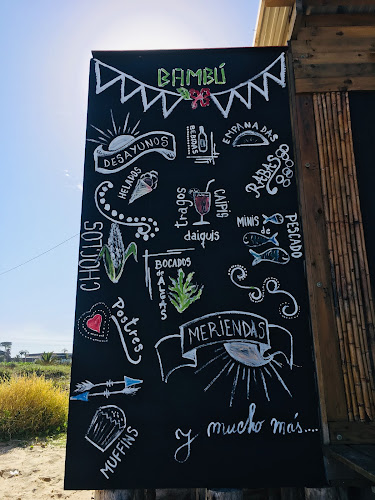 BAMBÚ
DESAYUNOS
BEBIDAS
EMPANADAS
HELADOS
RABAS
tragos
CAIPIS
daiquis
MINIS de
PESCADO
CHOCLOS
BOCADOS
de ALGAS
Postres
MERIENDAS
MUFFINS
y mucho más....